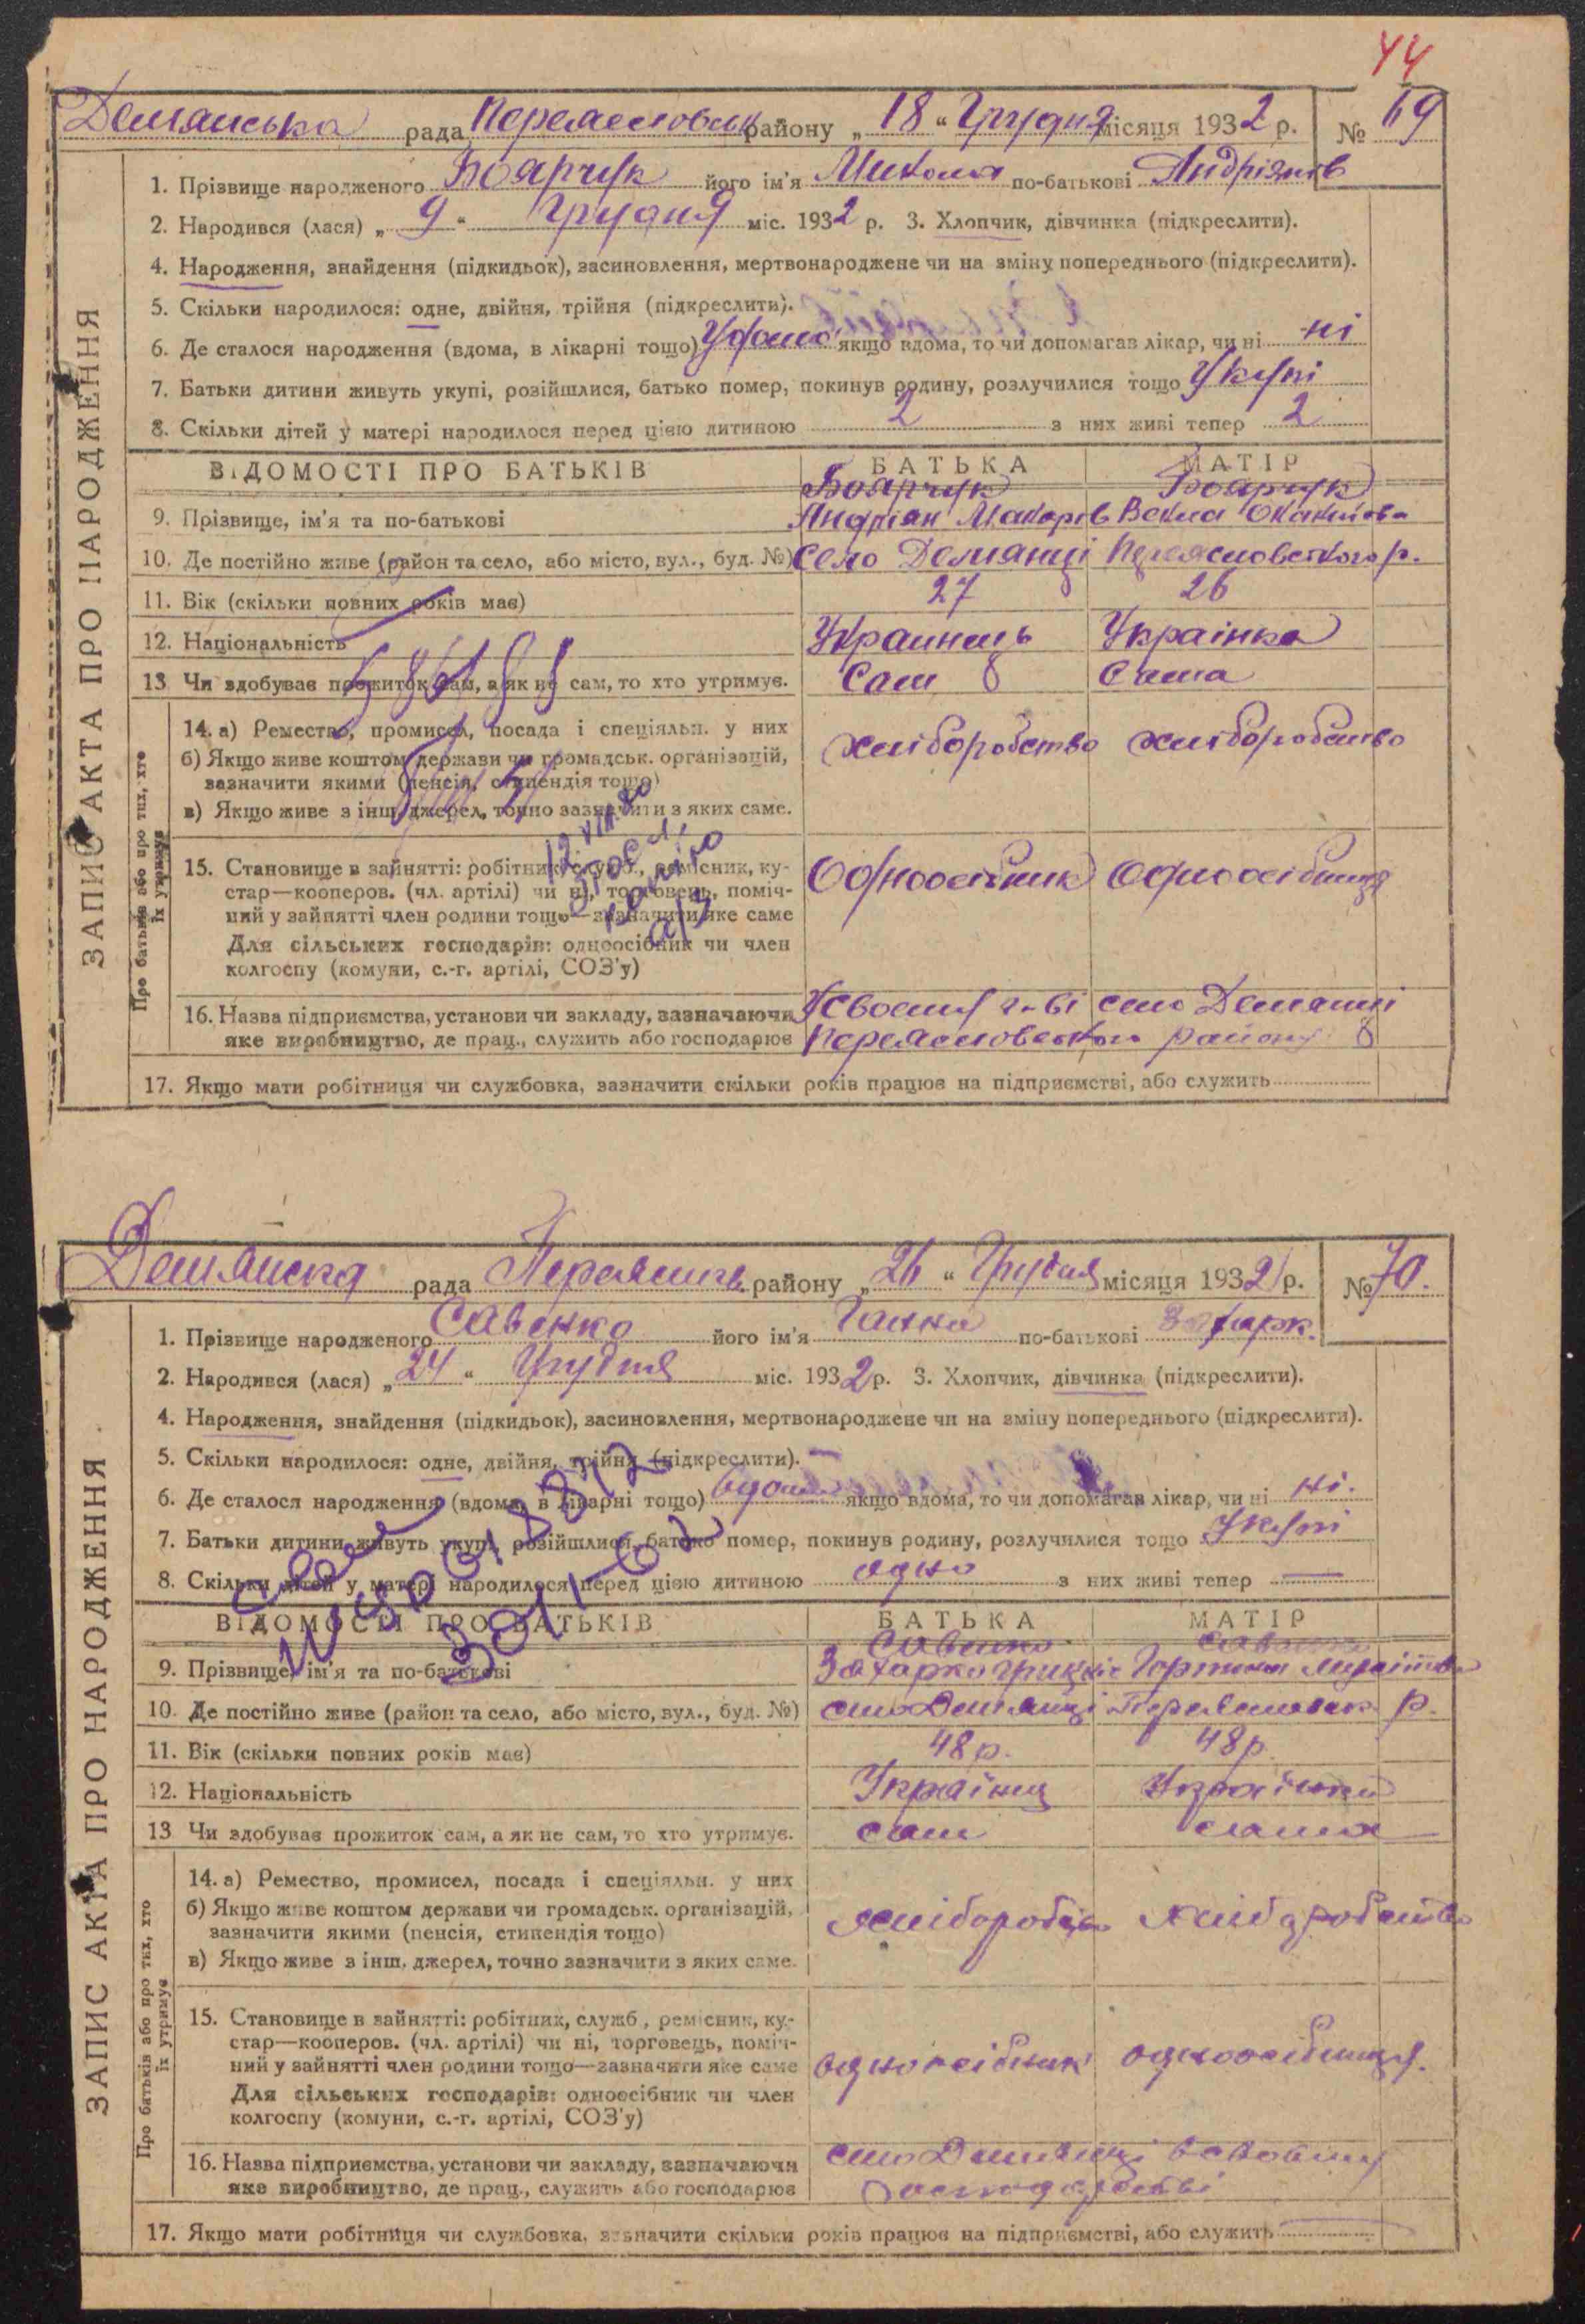 44
Демянська рада Переясловськ району „18“ Грудня місяця 1932 р. № 69
1. Прізвище народженого Боярчук його ім'я Микола по-батькові Андріянів
2. Народився (лася) „9“ Грудня міс. 1932 р. 3. Хлопчик, дівчинка (підкреслити).
4. Народження, знайдення (підкидьок), засиновлення, мертвонароджене чи на зміну попереднього (підкреслити).
5. Скільки народилося: одне, двійня, трійня (підкреслити).
6. Де сталося народження (вдома, в лікарні тощо) Удома якщо вдома, то чи допомагав лікар, чи ні ні
7. Батьки дитини живуть укупі, розійшлися, батько помер, покинув родину, розлучилися тощо Укупі
8. Скільки дітей у матері народилося перед цією дитиною 2 з них живі тепер 2
ВІДОМОСТІ ПРО БАТЬКІВ БАТЬКА МАТІР
Боярчук Боярчук
9. Прізвище, ім'я та по-батькові Андріян Макорів Векла
10. Де постійно живе (район та село, або місто, вул., буд. №) село Демянці Переясловського р.
11. Вік (скільки повних років має) 27 26
12. Національність Украинець Українка
13. Чи здобував прожиток сам, а як не сам, то хто утримує. Сам Сама
14. а) Ремество, промисел, посада і спеціяльн. у них
б) Якщо живе коштом держави чи громадськ. організацій,
зазначити якими (пенсія, стипендія тощо)
хліборобство хліборобство
в) Якщо живе з інш. джерел, точно зазначити з яких саме.
12 VIII 80
15. Становище в зайнятті: робітник, служб., ремісник, ку-
стар—кооперов. (чл. артілі) чи ні, торговець, поміч-
ний у зайнятті член родини тощо—зазначити яке саме
Для сільських господарів: одноосібник чи член
колгоспу (комуни, с.-г. артілі, СОЗ'у)
Одноосібник Одноосібниця
16. Назва підприємства, установи чи закладу, зазначаючи
яке виробництво, де прац., служить або господарює
У своему г-ві село Демянці
Переясловського району
17. Якщо мати робітниця чи службовка, зазначити скільки років працює на підприємстві, або служить
ЗАПИС АКТА ПРО НАРОДЖЕННЯ
Про батьків або про тих, хто
їх утримує
Демянска рада району „26“ Грудня місяця 1932 р. № 70.
1. Прізвище народженого Савенко його ім'я Ганна по-батькові Захарк.
2. Народився (лася) „24“ Грудня міс. 1932 р. 3. Хлопчик, дівчинка (підкреслити).
4. Народження, знайдення (підкидьок), засиновлення, мертвонароджене чи на зміну попереднього (підкреслити).
5. Скільки народилося: одне, двійня, трійня (підкреслити).
6. Де сталося народження (вдома, в лікарні тощо) вдома якщо вдома, то чи допомагав лікар, чи ні ні.
7. Батьки дитини живуть укупі, розійшлися, батько помер, покинув родину, розлучилися тощо Укупі
8. Скільки дітей у матері народилося перед цією дитиною одно з них живі тепер —
ВІДОМОСТІ ПРО БАТЬКІВ БАТЬКА МАТІР
Савенко Савенко
9. Прізвище, ім'я та по-батькові Захарко
10. Де постійно живе (район та село, або місто, вул., буд. №) село Демянці р.
11. Вік (скільки повних років має) 48 р. 48 р.
12. Національність Українец Українка
13 Чи здобував прожиток сам, а як не сам, то хто утримує. сам сама
14. а) Ремество, промисел, посада і спеціяльн. у них
б) Якщо живе коштом держави чи громадськ. організацій,
зазначити якими (пенсія, стипендія тощо)
хліборобство
в) Якщо живе з інш. джерел, точно зазначити з яких саме.
15. Становище в зайнятті: робітник, служб., ремісник, ку-
стар—кооперов. (чл. артілі) чи ні, торговець, поміч-
ний у зайнятті член родини тощо—зазначити яке саме
Для сільських господарів: одноосібник чи член
колгоспу (комуни, с.-г. артілі, СОЗ'у)
одноосібник одноосібниця.
16. Назва підприємства, установи чи закладу, зазначаючи
яке виробництво, де прац., служить або господарює
село Демянці
господарстві
17. Якщо мати робітниця чи службовка, зазначити скільки років працює на підприємстві, або служить
ЗАПИС АКТА ПРО НАРОДЖЕННЯ
Про батьків або про тих, хто
їх утримує